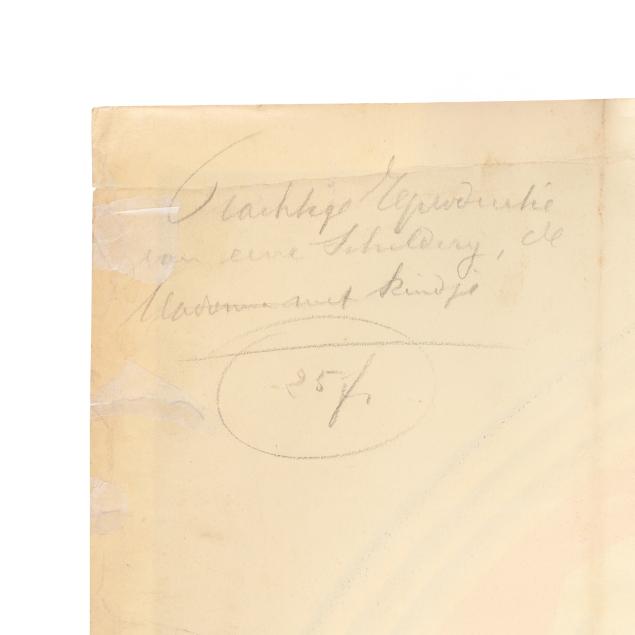 Prachtige Reproductie
van eene Schildery, de
Madonna met kindje
25 fr